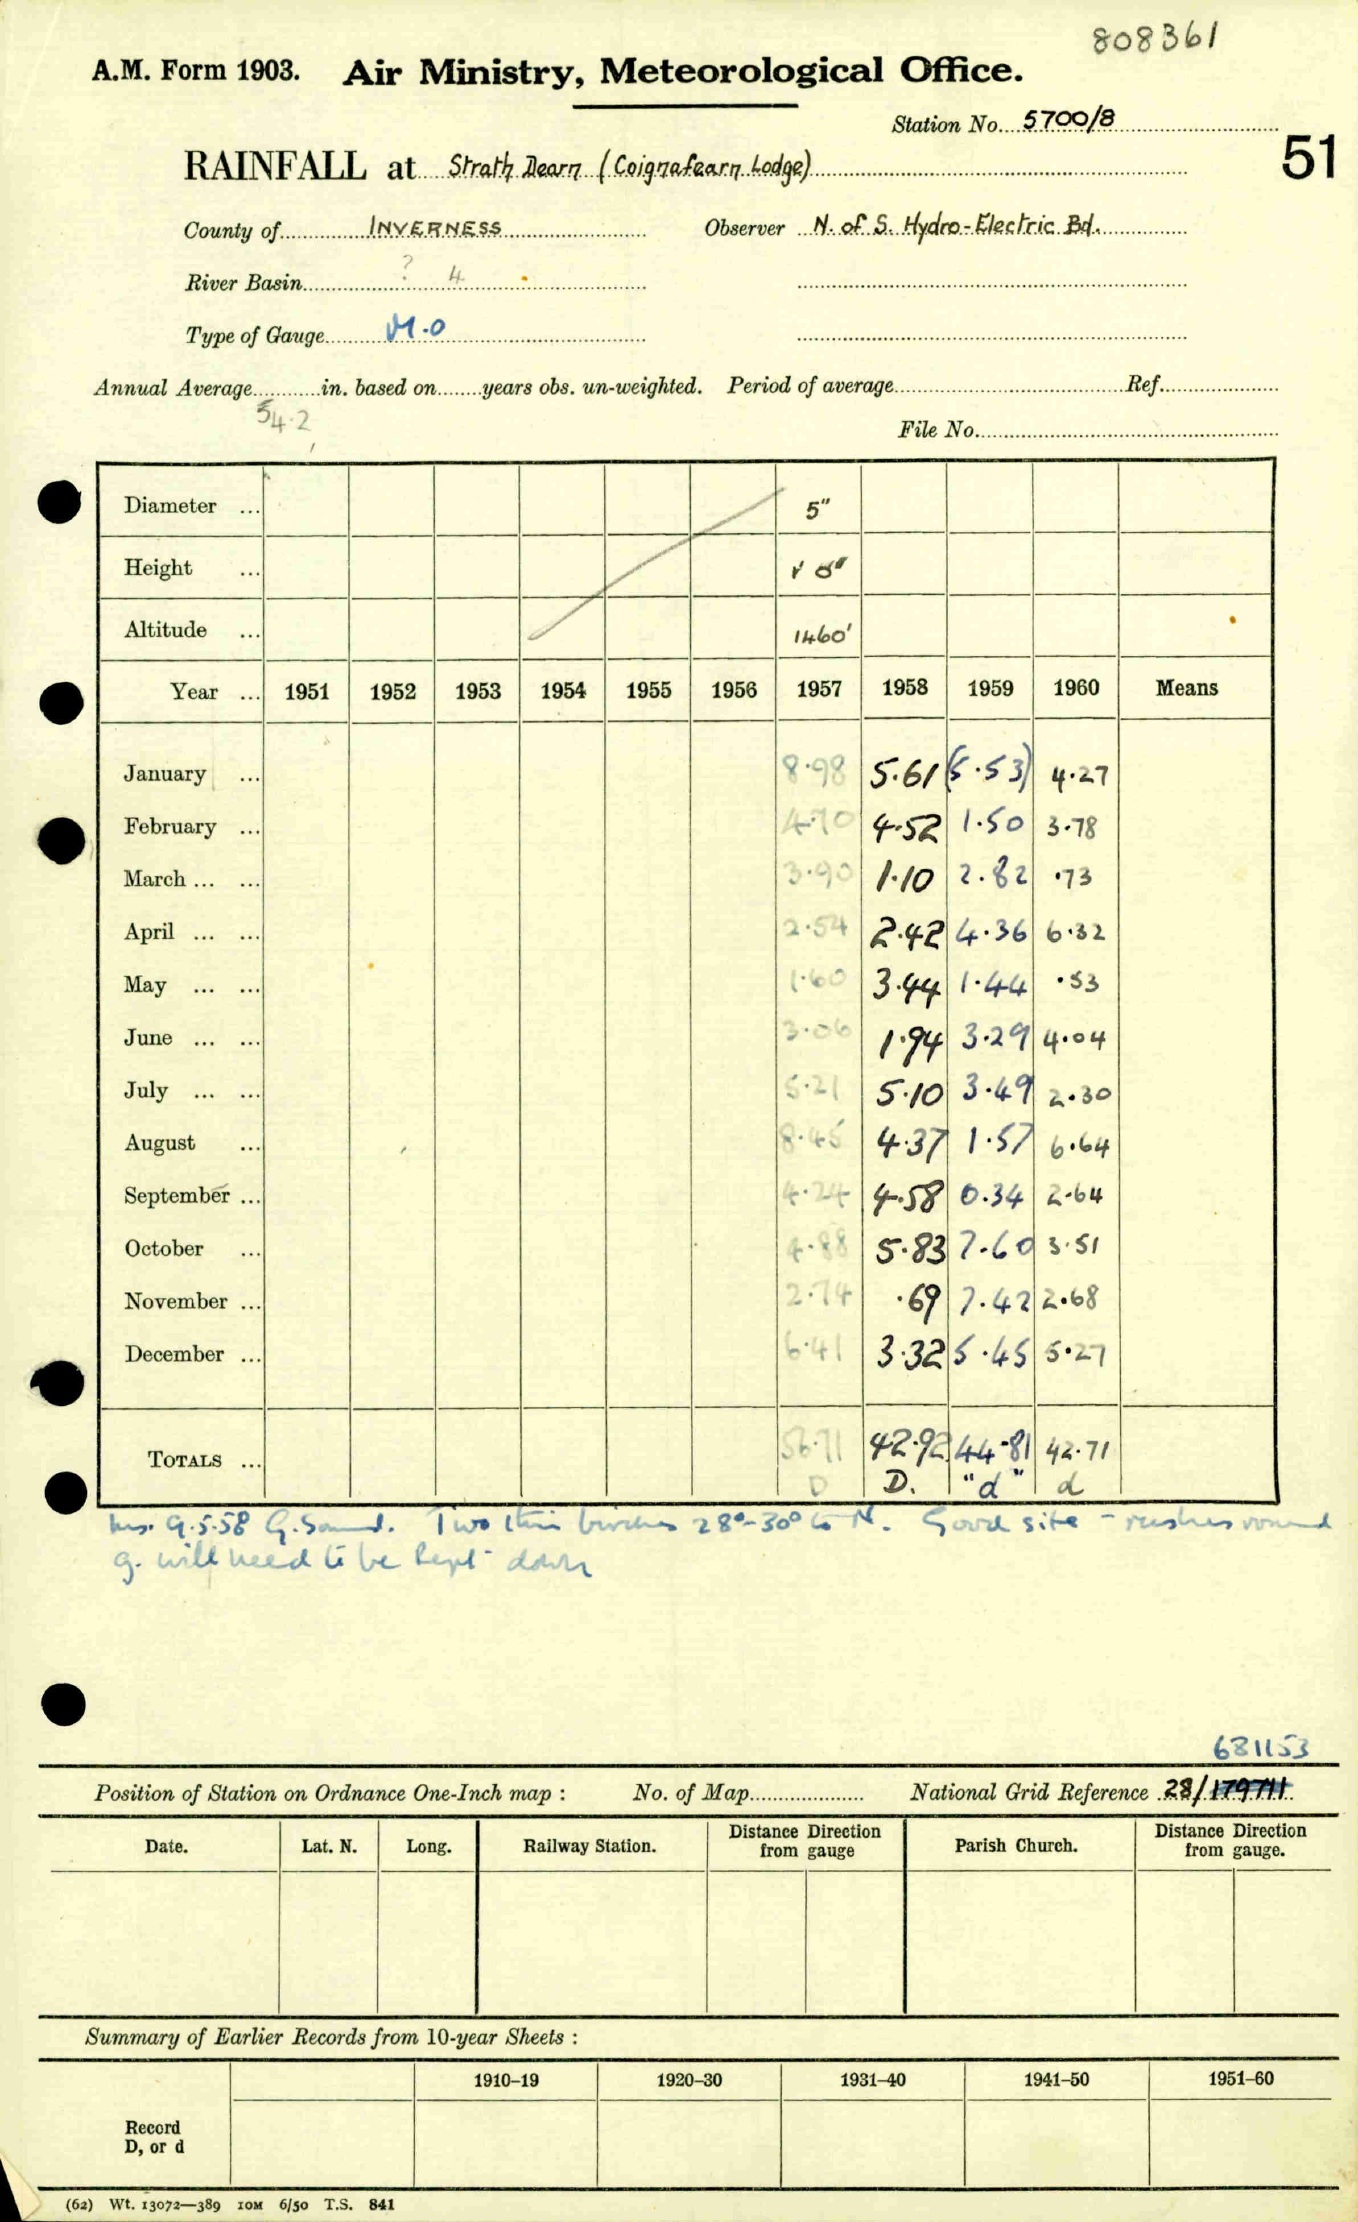 808361
A.M. Form 1903. Air Ministry, Meteorological Office.
Station No. 5700/8
51
RAINFALL at Strath Dearn (Coignafearn Lodge)
County of INVERNESS Observer N. of S. Hydro-Electric Bd.
River Basin ? 4
Type of Gauge M.O
Annual Average in. based on years obs. un-weighted. Period of average Ref.
54.2
File No.
Diameter ... 5"
Height ...
Altitude ... 1460'
Year ... 1951 1952 1953 1954 1955 1956 1957 1958 1959 1960 Means
January ... 8.98 5.61 (5.53) 4.27
February ... 4.70 4.52 1.50 3.78
March ... ... 3.90 1.10 2.82 .73
April ... ... 2.54 2.42 4.36 6.32
May ... ... 1.60 3.44 1.44 .53
June ... ... 3.06 1.94 3.29 4.04
July ... ... 5.21 5.10 3.49 2.30
August ... 8.45 4.37 1.57 6.64
September ... 4.24 4.58 0.34 2.64
October ... 4.88 5.83 7.60 3.51
November ... 2.74 .69 7.42 2.68
December ... 6.41 3.32 5.45 5.27
TOTALS ... 56.71 42.92 44.81 42.71
D D. "d" d
Ins. 9.5.58 G. Two thin birches 28°-30° to N. Good site - rushes round
g. will need to be kept down
681153
Position of Station on Ordnance One-Inch map : No. of Map National Grid Reference 28/179711
Date. Lat. N. Long. Railway Station. Distance Direction from gauge Parish Church. Distance Direction from gauge.
Summary of Earlier Records from 10-year Sheets :
1910–19 1920–30 1931–40 1941–50 1951–60
Record
D, or d
(62) Wt. 13072—389 10M 6/50 T.S. 841